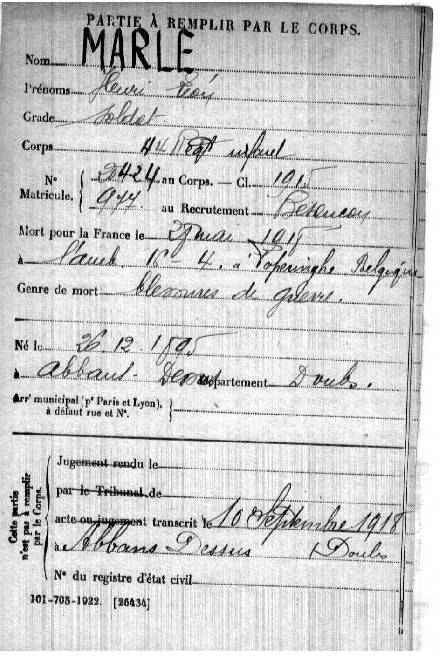 PARTIE À REMPLIR PAR LE CORPS.
Nom MARLE
Prénoms Henri Léon
Grade Soldat
Corps 44 Regt infant
N° 2424 au Corps. — Cl. 1915
Matricule. 977 au Recrutement Besançon
Mort pour la France le mai
à l'amb. 16 - 4. à Poperinghe Belgique
Genre de mort blessures de guerre.
Né le 26.12.1895
à Abbans - Dessus Département Doubs.
Arrt municipal (pr Paris et Lyon),
à défaut rue et N°.
Cette partie
n'est pas à remplir
par le Corps.
Jugement rendu le
par le Tribunal de
acte ou jugement transcrit le 10 Septembre 1918
à Abbans Dessus Doubs
N° du registre d'état civil
101-708-1922. [26434]